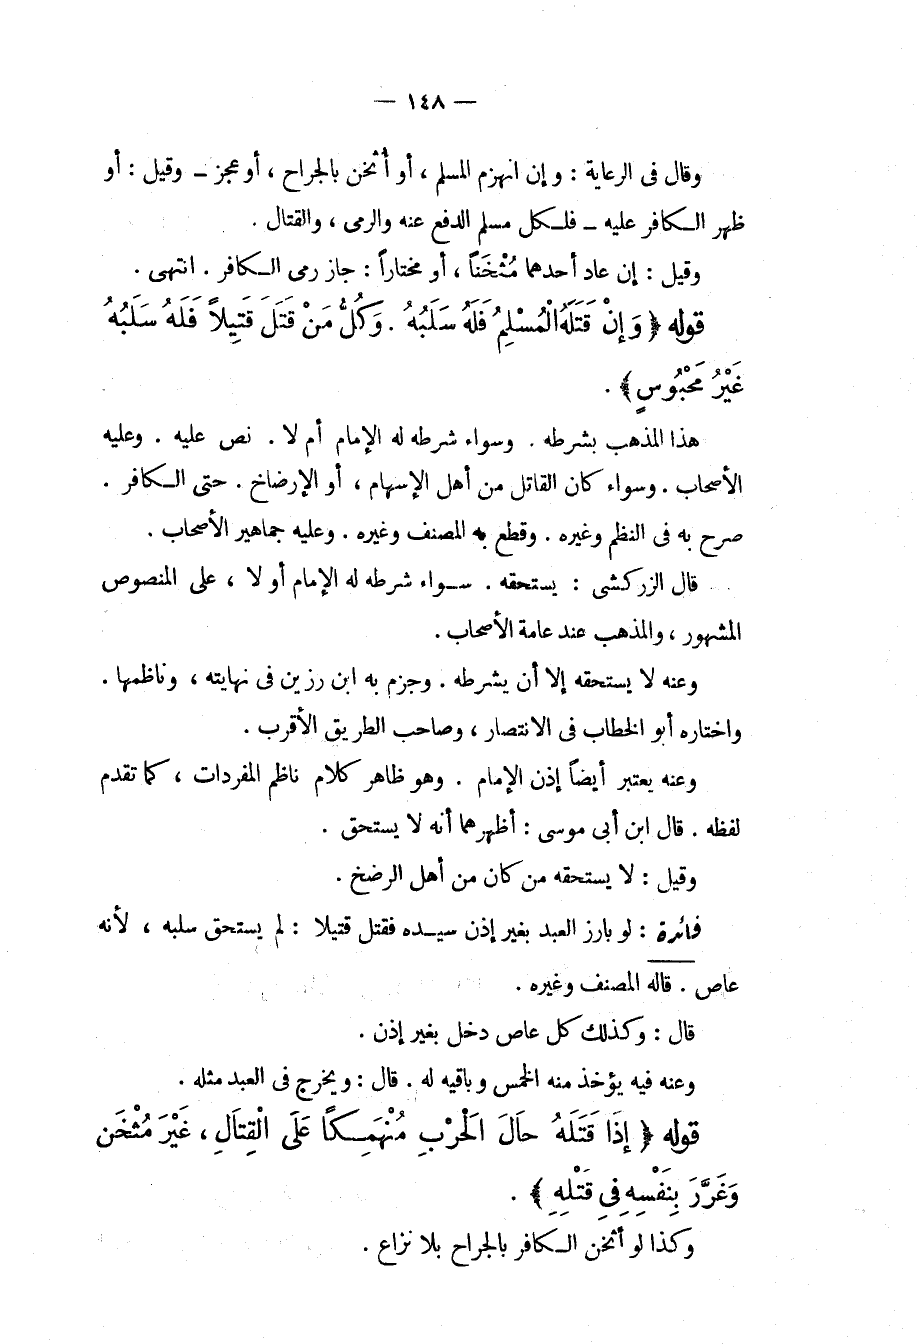 — ١٤٨ —
وقال فى الرعاية : وإن انهزم المسلم ، أو أُثخن بالجراح ، أو عجز ــ وقيل : أو
ظهر الكافر عليه ــ فلكل مسلم الدفع عنه والرمى ، والقتال .
وقيل : إن عاد أحدهما مُثْخَناً ، أو مختاراً : جاز رمى الكافر . انتهى .
قوله ﴿ وَإِنْ قَتَلَهُ الْمُسْلِمُ فَلَهُ سَلَبُهُ . وَكُلُّ مَنْ قَتَلَ قَتِيلاً فَلَهُ سَلَبُهُ
غَيْرُ مَخْبُوسٍ ﴾ .
هذا المذهب بشرطه . وسواء شرطه له الإمام أم لا . نص عليه . وعليه
الأصحاب . وسواء كان القاتل من أهل الإسهام ، أو الإرضاخ . حتى الكافر .
صرح به فى النظم وغيره . وقطع به المصنف وغيره . وعليه جماهير الأصحاب .
قال الزركشى : يستحقه . سواء شرطه له الإمام أو لا ، على المنصوص
المشهور ، والمذهب عند عامة الأصحاب .
وعنه لا يستحقه إلا أن يشرطه . وجزم به ابن رزين فى نهايته ، وناظمها .
واختاره أبو الخطاب فى الانتصار ، وصاحب الطريق الأقرب .
وعنه يعتبر أيضاً إذن الإمام . وهو ظاهر كلام ناظم المفردات ، كما تقدم
لفظه . قال ابن أبى موسى : أظهرهما أنه لا يستحق .
وقيل : لا يستحقه من كان من أهل الرضخ .
فائدة : لو بارز العبد بغير إذن سيده فقتل قتيلا : لم يستحق سلبه ، لأنه
عاص . قاله المصنف وغيره .
قال : وكذلك كل عاص دخل بغير إذن .
وعنه فيه يؤخذ منه الخمس وباقيه له . قال : ويخرج فى العبد مثله .
قوله ﴿ إِذَا قَتَلَهُ حَالَ الْحَرْبِ مُنْهَمِكًا عَلَى الْقِتَالِ ، غَيْرَ مُثْخَن
وَغَرَّرَ بِنَفْسِهِ فِي قَتْلِهِ ﴾ .
وكذا لو أثخن الكافر بالجراح بلا نزاع .